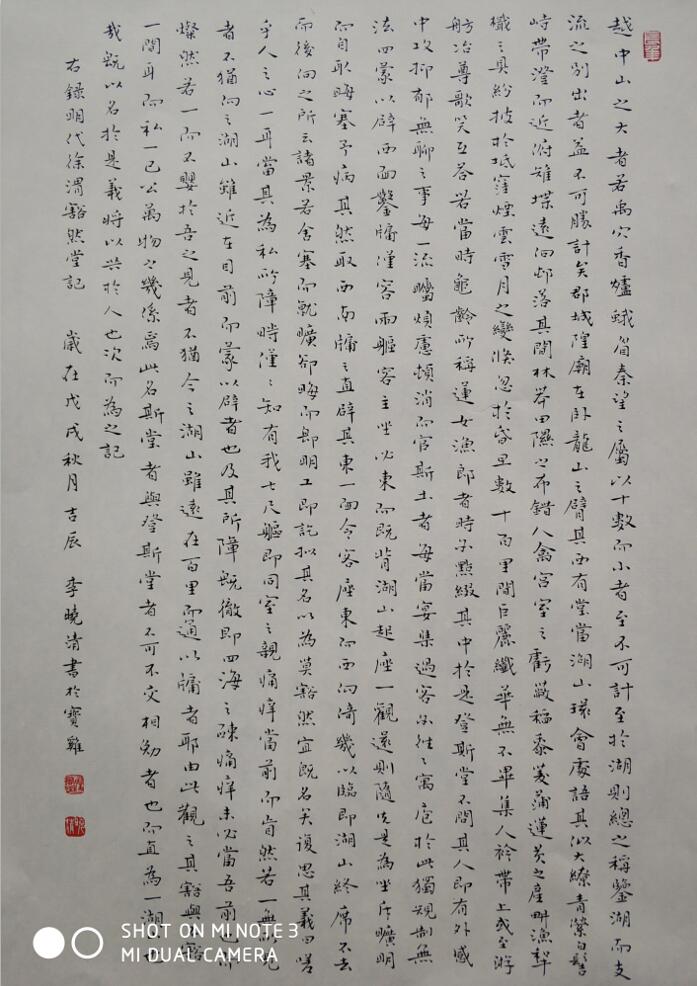 越中山之大者若禹穴香爐蛾眉秦望之屬以十數而小者至不可計至於湖則總之稱鑒湖而支
流之別出者益不可勝計矣郡城隍廟在卧龍山之臂其西有堂當湖山環會處語其似大繚青縈白髻
峙帶澄而近俯雉堞遠向邨落其間林莽田隰之布錯人禽宮室之虧蔽稻黍菱蒲蓮芡之產畊漁犁
檝之具紛披於坻窪煙雲雪月之變倏忽於昏旦數十百里間巨麗纖華無不畢集人衿帶上或至游
舫冶尊歌笑互答若當時龜齡所稱蓮女漁郎者時亦點綴其中於是登斯堂不問其人即有外感
中攻抑鬱無聊之事每一流矚煩慮頓消而官斯土者每當宴集過客亦往之寓庖於此獨規制無
法四蒙以辟西面鑿牖僅容兩軀客主坐必東而既背湖山起座一觀還則隨失是為坐斥曠明
而自取晦塞予病其然取西南牖之直辟其東一面令客座東而西向倚幾以臨即湖山終席不去
而後向之所云諸景若舍塞而就曠卻晦而即明工即訖擬其名以為莫豁然宜既名矣復思其義曰嗟
乎人之心一耳當其為私所障時僅僅知有我七尺軀即同室之親痛痒當前而盲然若一無所見
者不猶向之湖山雖近在目前而蒙以辟者也及其所障既徹即四海之疎痛痒未必當吾前也而
燦然若一而不嬰於吾之見者不猶今之湖山雖遠在百里而通以牖者耶由此觀之其豁與不豁
一間耳而私一己公萬物之幾係焉此名斯堂者與登斯堂者不可不交相勉者也而直為一湖山也
哉既以名於是義將以共於人也次而為之記
右錄明代徐渭豁然堂記 歲在戊戌秋月吉辰 李曉清書於寶雞
SHOT ON MI NOTE 3
MI DUAL CAMERA